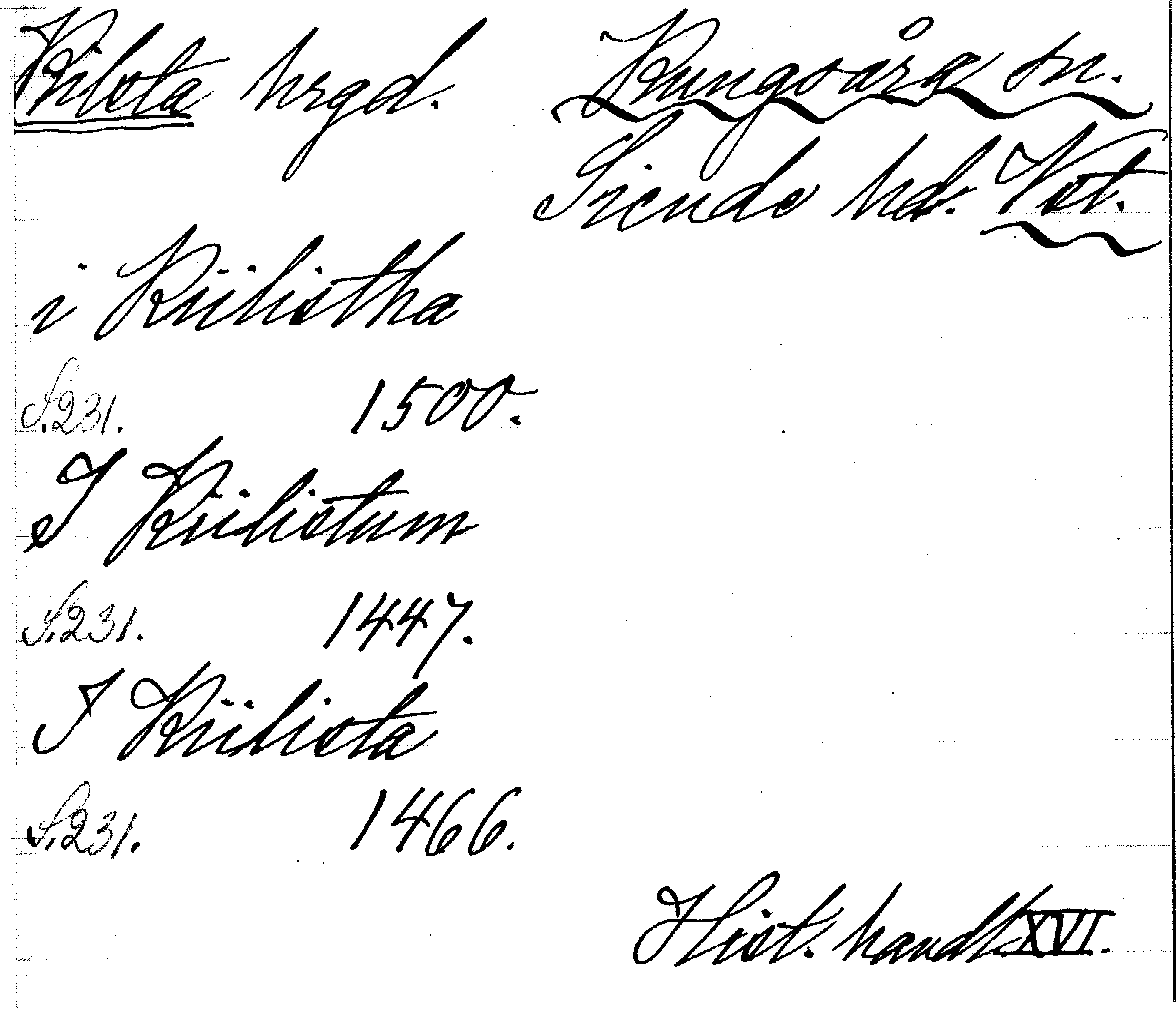 Kilsta hrgd. Kungsåra sn.
Siende hd. Vst.
i Kiilistha
S.231. 1500.
I Kiilistum
S.231. 1447.
I Kiilista
S.231. 1466.
Hist. handl. XVI.